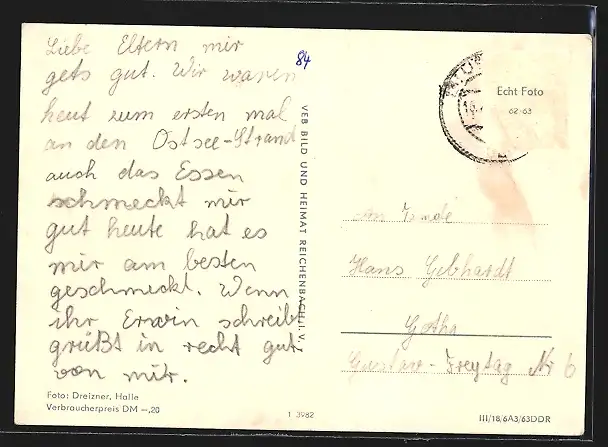 Liebe Eltern mir
gets gut. Wir waren
heut zum ersten mal
an den Ostsee-Strand
auch das Essen
schmeckt mir
gut heute hat es
mir am besten
geschmeckt. Wenn
ihr Erwin schreibt
grüßt in recht gut
von mir.
Foto: Dreizner, Halle
Verbraucherpreis DM –,20
84
VEB BILD UND HEIMAT REICHENBACH I. V.
1 3982
Echt Foto
62-63
An
Hans Gebhardt
Gotha
Gustav-Freytag Nr 6
III/18/6A3/63DDR